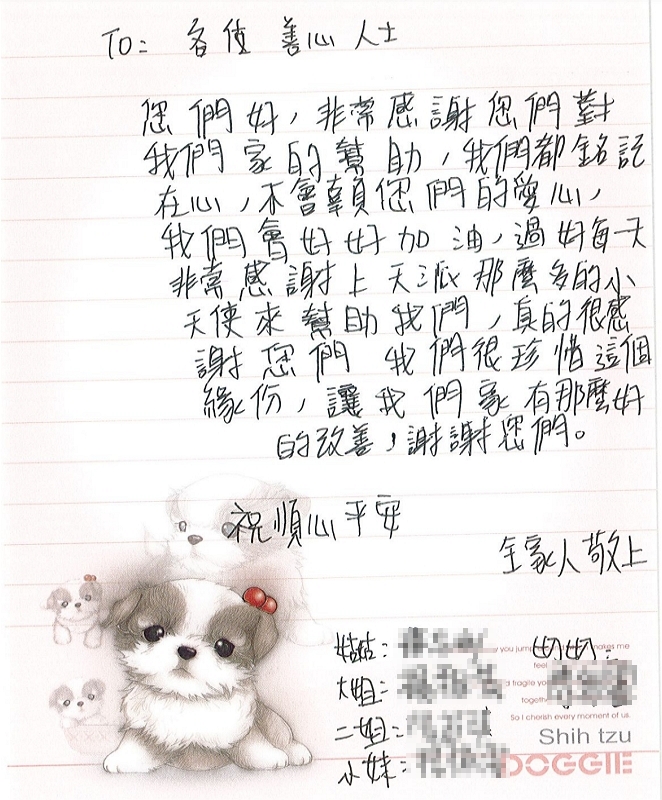 To: 各位 善心人士
您們好，非常感謝您們對
我們家的幫助，我們都銘記
在心，不會辜負您們的愛心，
我們會好好加油，過好每天
非常感謝上天派那麼多的小
天使來幫助我們，真的很感
謝您們 我們很珍惜這個
緣份，讓我們家有那麼好
的改善，謝謝您們。
祝順心平安
全家人敬上
姑姑：
奶奶：
大姐：
二姐：
小妹：
you jump
makes me
feel
d fragile yo
together
So I cherish every moment of us.
Shih tzu
DOGGIE